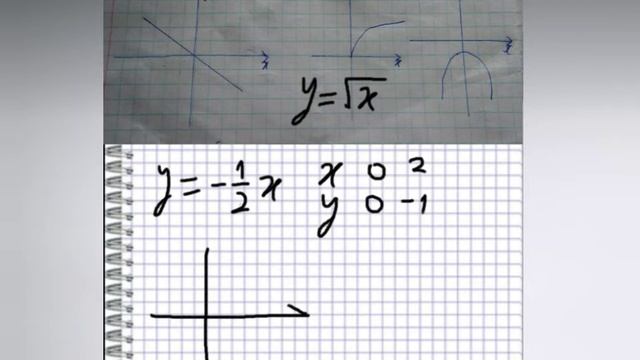 x x x
y = √x
y = -1/2 x
x 0 2
y 0 -1